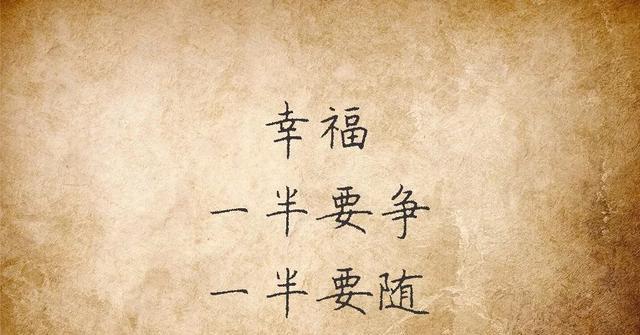 幸福
一半要争
一半要随